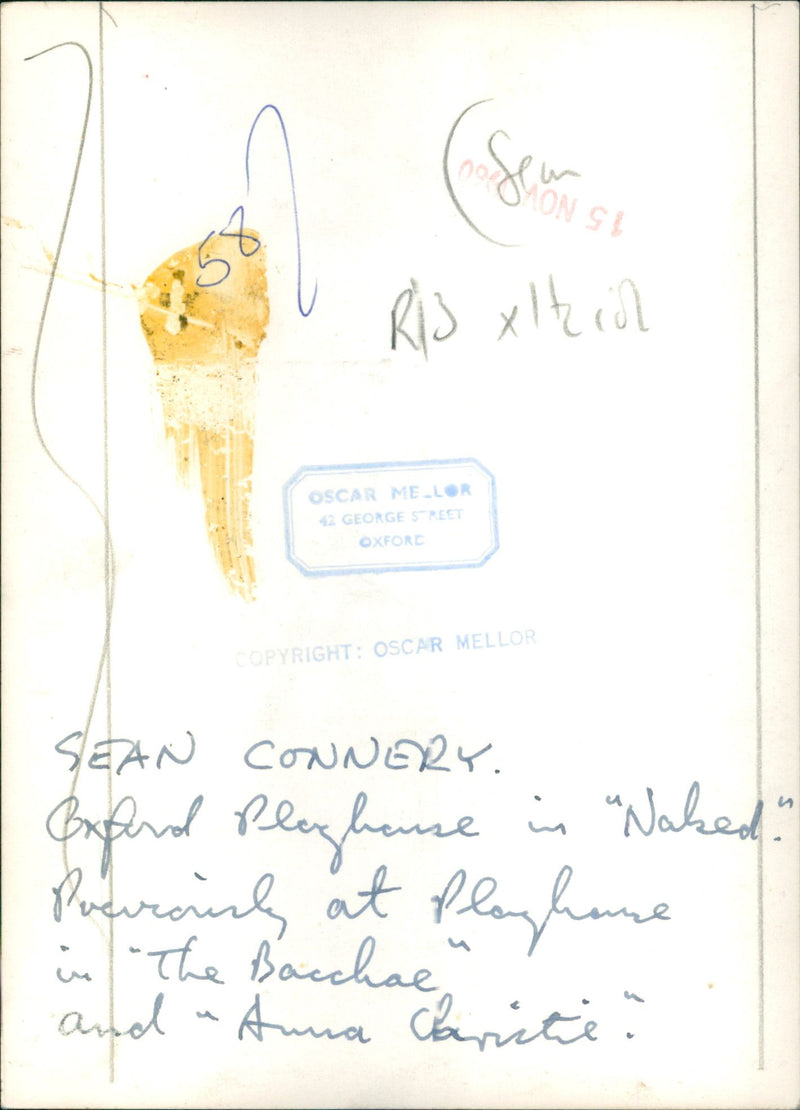 58
Sean
15 NOV 1980
R/3 x 1½ col
OSCAR MELLOR
42 GEORGE STREET
OXFORD
COPYRIGHT: OSCAR MELLOR
SEAN CONNERY.
Oxford Playhouse in "Naked."
Previously at Playhouse
in "The Bacchae"
and "Anna Christie".